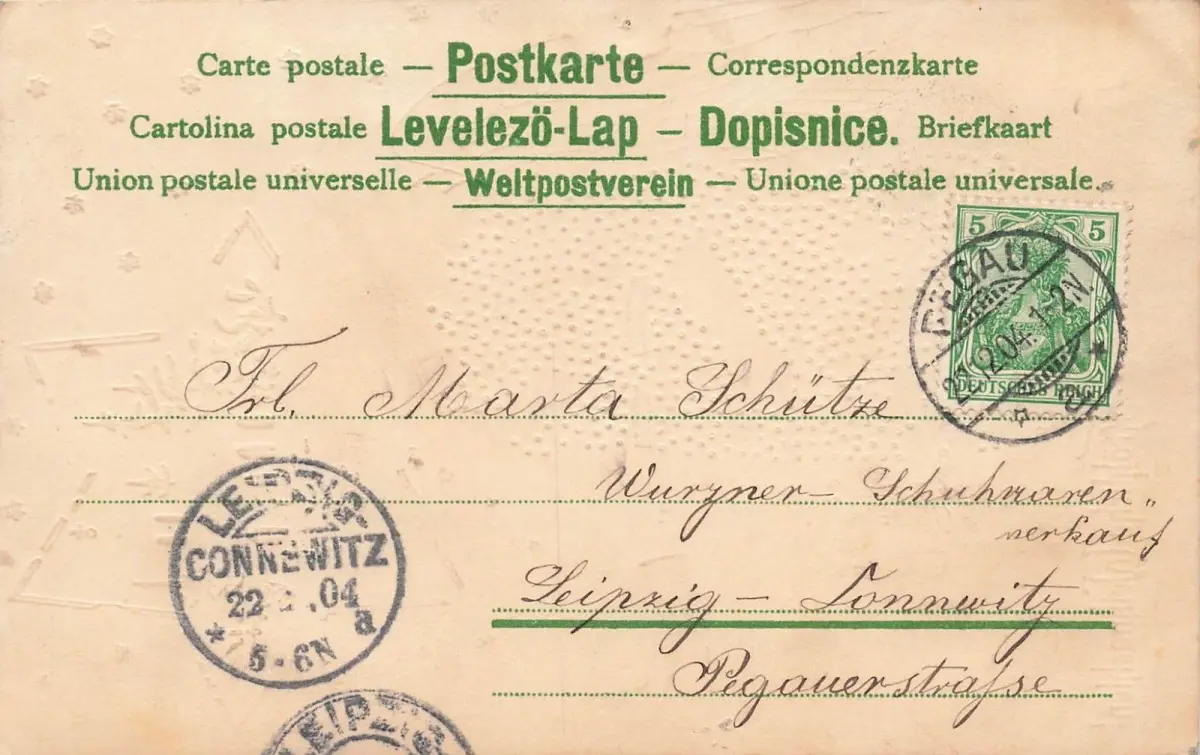 Carte postale — Postkarte — Correspondenzkarte
Cartolina postale Levelezö-Lap — Dopisnice. Briefkaart
Union postale universelle — Weltpostverein — Unione postale universale.
5 5
DEUTSCHES REICH
PEGAU
2.04. 1-2N
Frl. Marta Schütze
Wurzner- Schuhwaren„
verkauf
Leipzig - Connewitz
Pegauerstrasse
LEIPZIG-
CONNEWITZ
22 .04
a
* 5-6N
LEIPZIG-